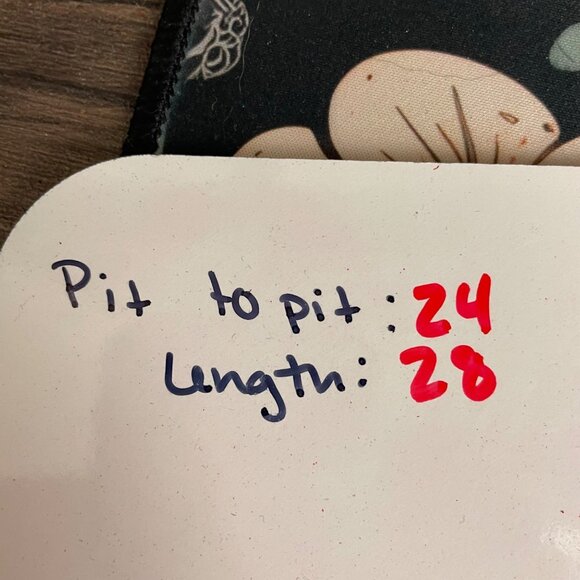 Pit to pit: 24
Length: 28